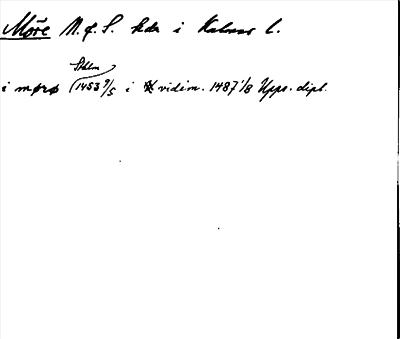 Möre N. o. S. hdr i Kalmar l.
Sthlm
i møro (1453 9/5 i vidim. 1487 1/8 Upps. dipl.